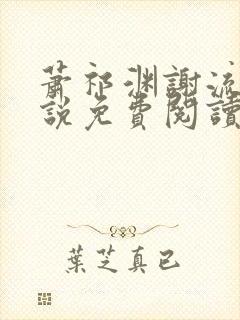 蕭祁渊謝流
說免費閱讀
葉芝真已